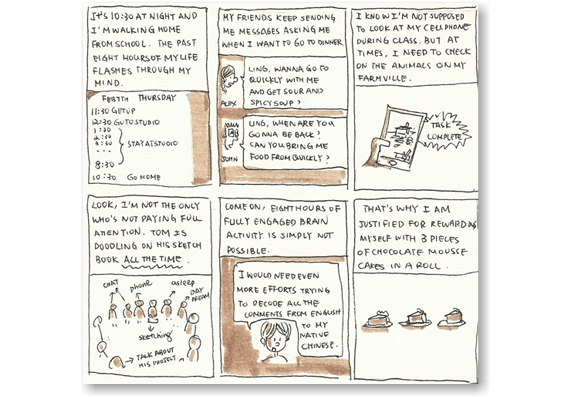 IT'S 10:30 AT NIGHT AND
I'M WALKING HOME
FROM SCHOOL. THE PAST
EIGHT HOURS OF MY LIFE
FLASHES THROUGH MY
MIND.
FEB 7TH THURSDAY
11:30 GET UP
12:30 GO TO STUDIO
1:30
2:30
3:30
...
STAY AT STUDIO
8:30
10:30 GO HOME
MY FRIENDS KEEP SENDING
ME MESSAGES ASKING ME
WHEN I WANT TO GO TO DINNER
LING, WANNA GO TO
QUICKLY WITH ME
AND GET SOUR AND
SPICY SOUP?
ALEX
LING, WHEN ARE YOU
GONNA BE BACK?
CAN YOU BRING ME
FOOD FROM QUICKLY?
JOHN
I KNOW I'M NOT SUPPOSED
TO LOOK AT MY CELLPHONE
DURING CLASS. BUT AT
TIMES, I NEED TO CHECK
ON THE ANIMALS ON MY
FARMVILLE.
TASK
COMPLETE
LOOK, I'M NOT THE ONLY
WHO'S NOT PAYING FULL
ATENTION. TOM IS
DOODLING ON HIS SKETCH
BOOK ALL THE TIME.
CHAT
phone
asleep
DAY
DREAM
sketching
TALK ABOUT
HIS PROJECT
COME ON, EIGHT HOURS OF
FULLY ENGAGED BRAIN
ACTIVITY IS SIMPLY NOT
POSSIBLE.
I WOULD NEED EVEN
MORE EFFORTS TRYING
TO DECODE ALL THE
COMMENTS FROM ENGLISH
TO MY
NATIVE
CHINESE.
THAT'S WHY I AM
JUSTIFIED FOR REWARDING
MYSELF WITH 3 PIECES
OF CHOCOLATE MOUSSE
CAKES IN A ROLL.